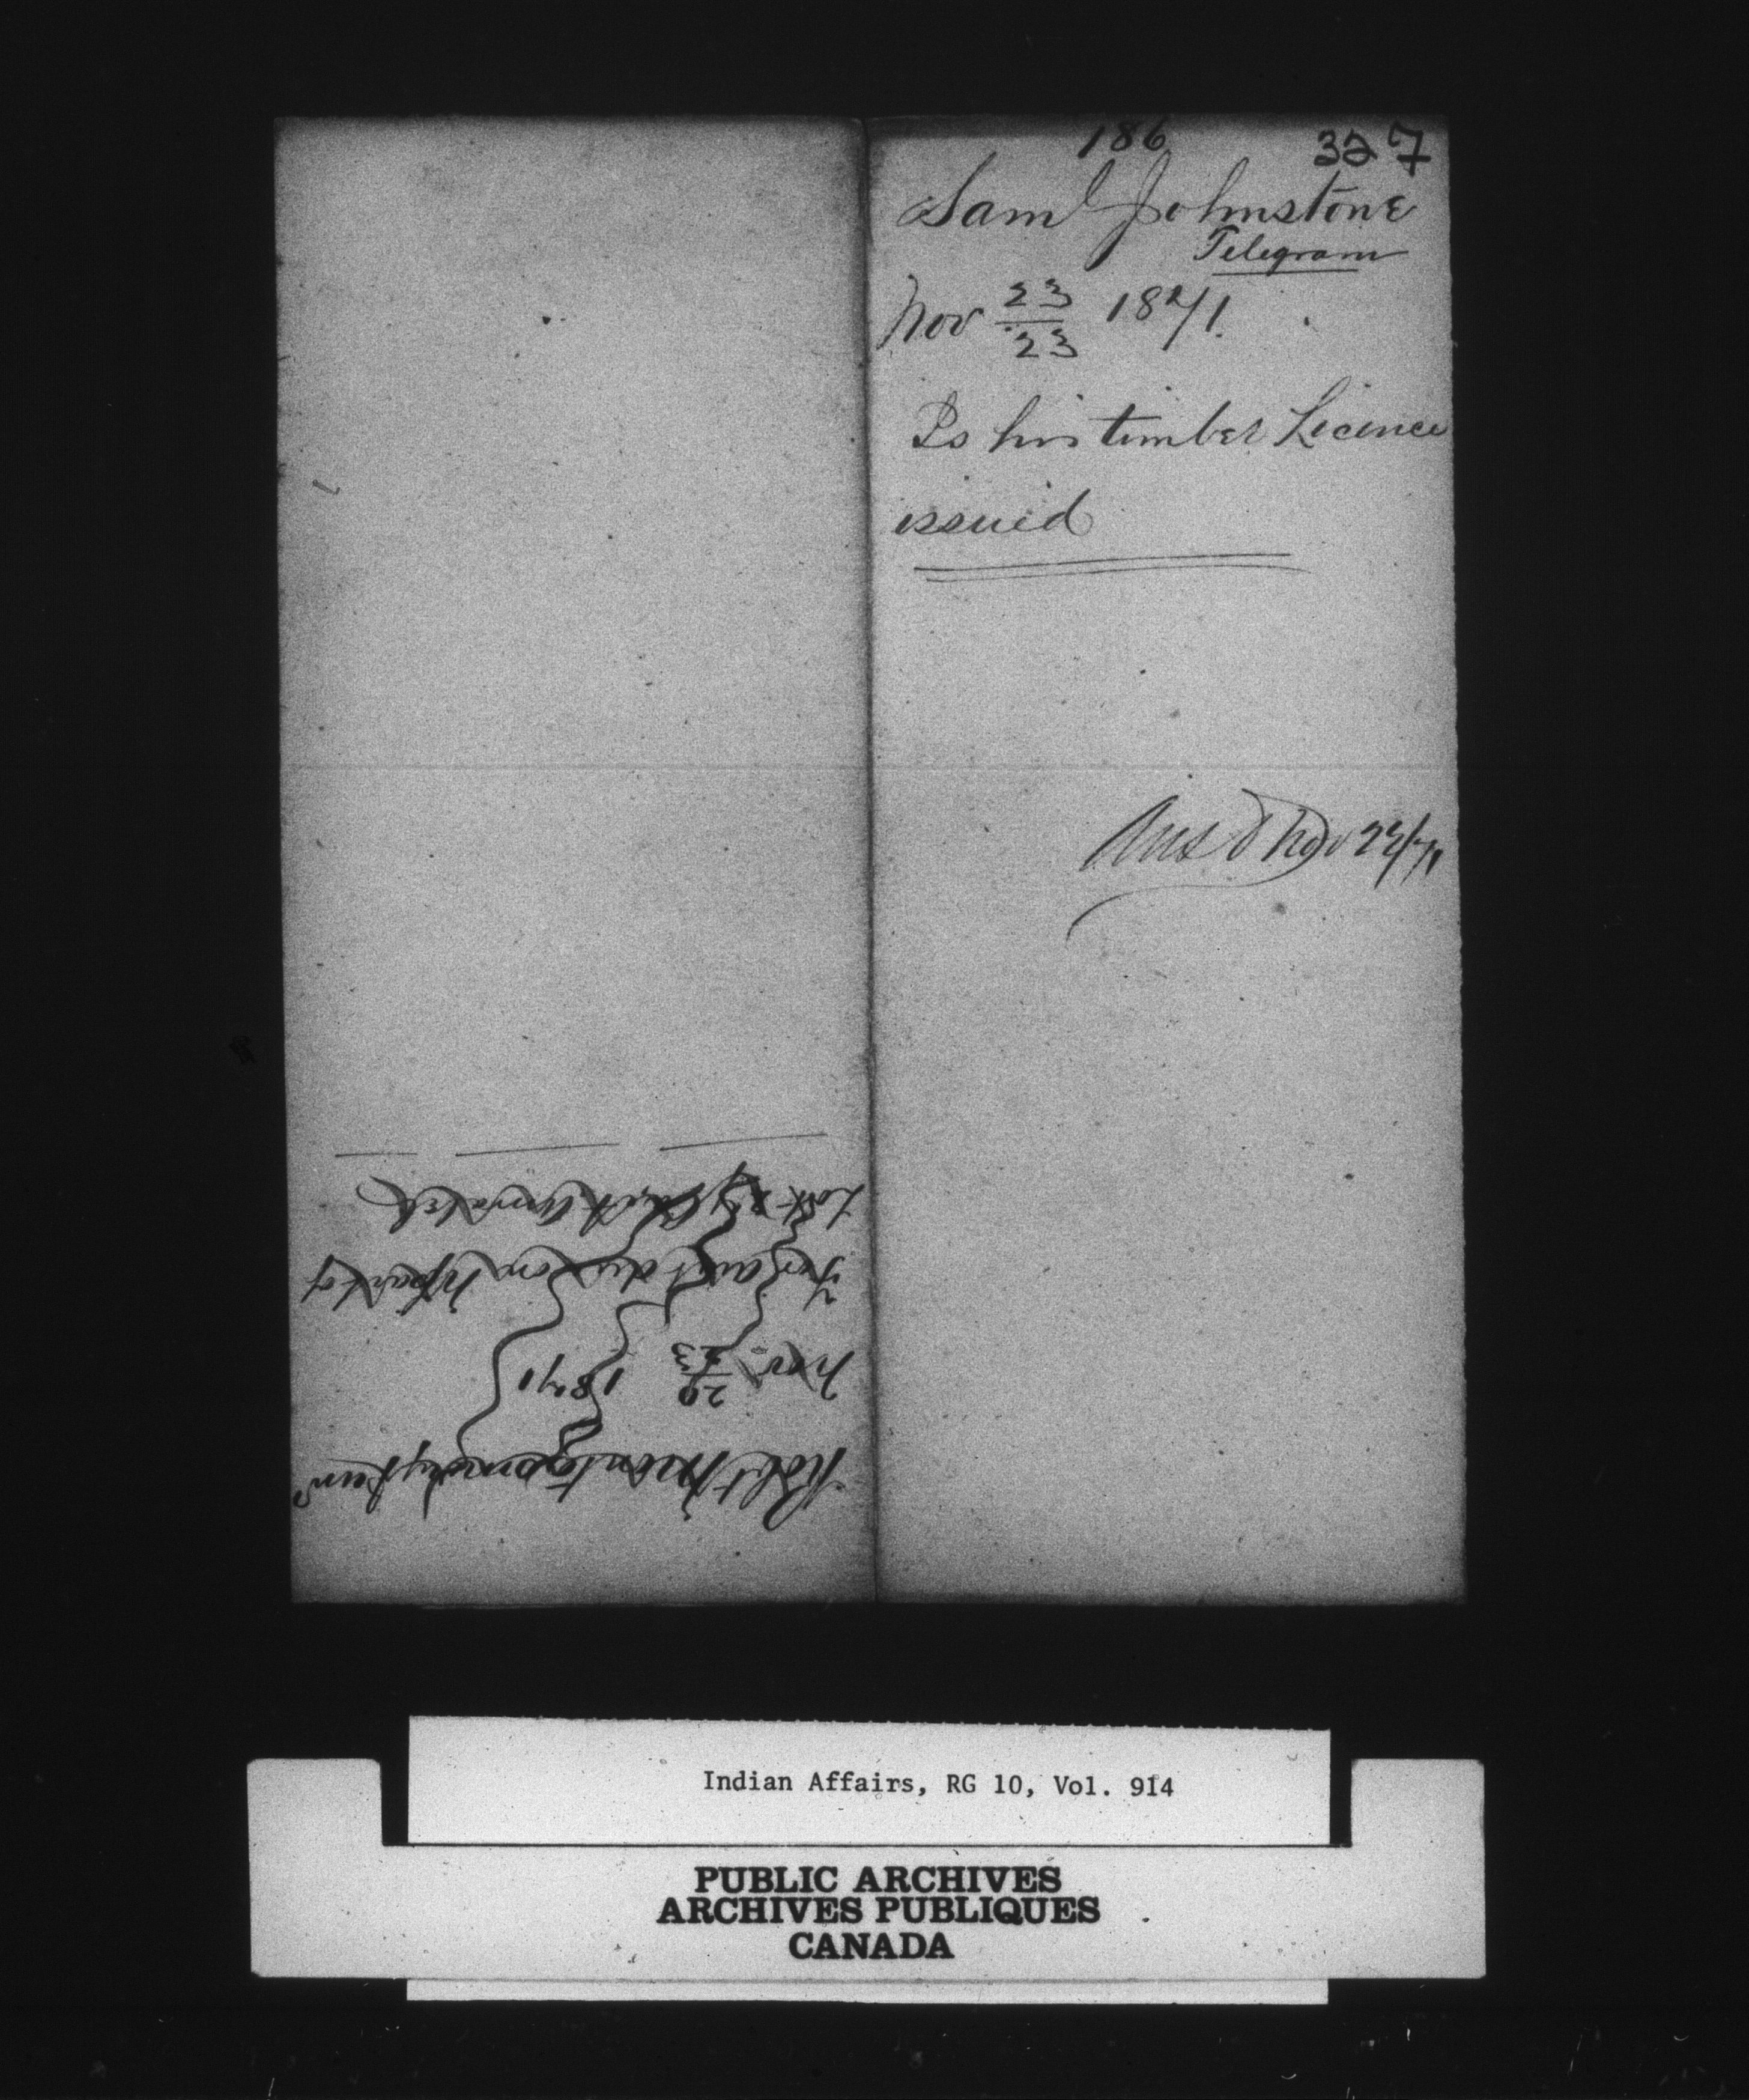 186 327
Saml Johnstone
Telegram
Nov 23/23 1871.
Is his timber Licence
issued
Ansd Nov 23/71
Robt Montgomery
Nov. 20/23 1871
inst on part of
Lot
Indian Affairs, RG 10, Vol. 914
PUBLIC ARCHIVES
ARCHIVES PUBLIQUES
CANADA